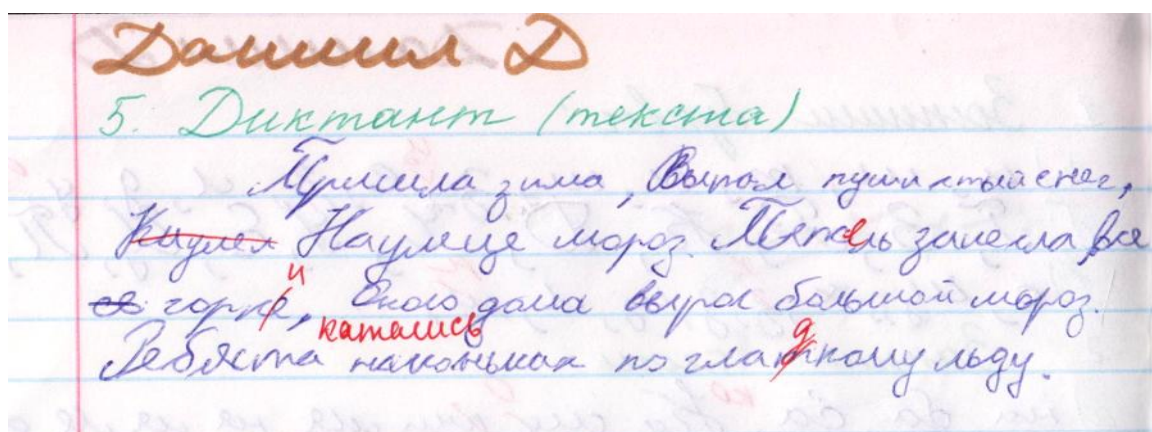 Даниил Д
5. Диктант (текста)
Пришла зима, Выпал пушистый снег,
Наулеце мороз. Метель занесла все
горки, Около дома вырос большой мороз.
катались
Ребяста наконьках по гладкому льду.